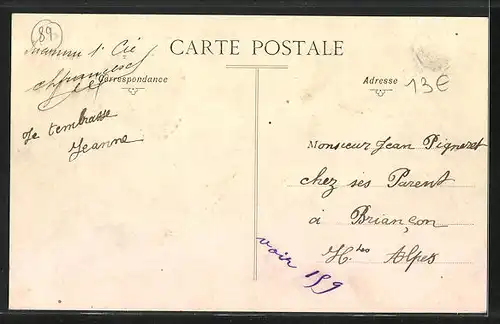 89
CARTE POSTALE
Correspondance
Adresse
13€
Je t'embrasse
Jeanne
Monsieur Jean Pigneret
chez ses Parent
à Briançon
Htes Alpes
voir 159